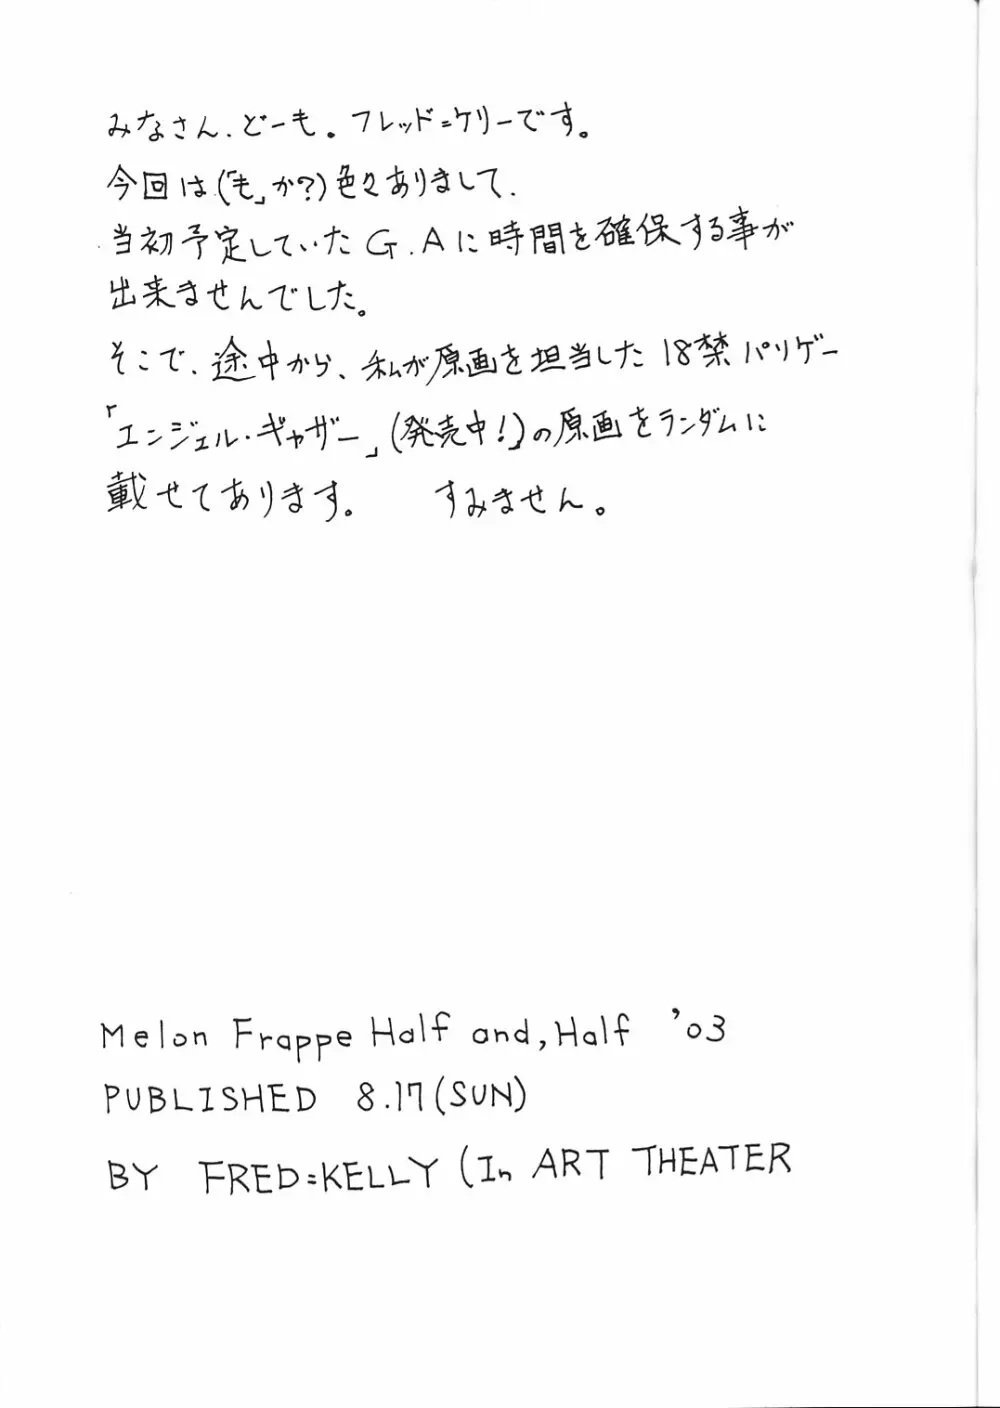 みなさん、どーも。フレッド=ケリーです。
今回は(「も」か?)色々ありまして、
当初予定していたG.Aに時間を確保する事が
出来ませんでした。
そこで、途中から、私が原画を担当した18禁パソゲー
「エンジェル・ギャザー」(発売中!)の原画をランダムに
載せてあります。 すみません。
Melon Frappe Half and, Half '03
PUBLISHED 8.17(SUN)
BY FRED=KELLY (In ART THEATER